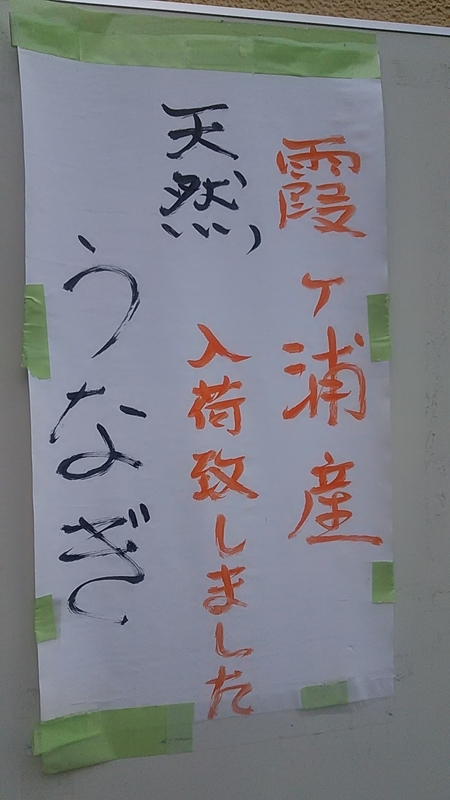 霞ヶ浦産
天然
うなぎ
入荷致しました